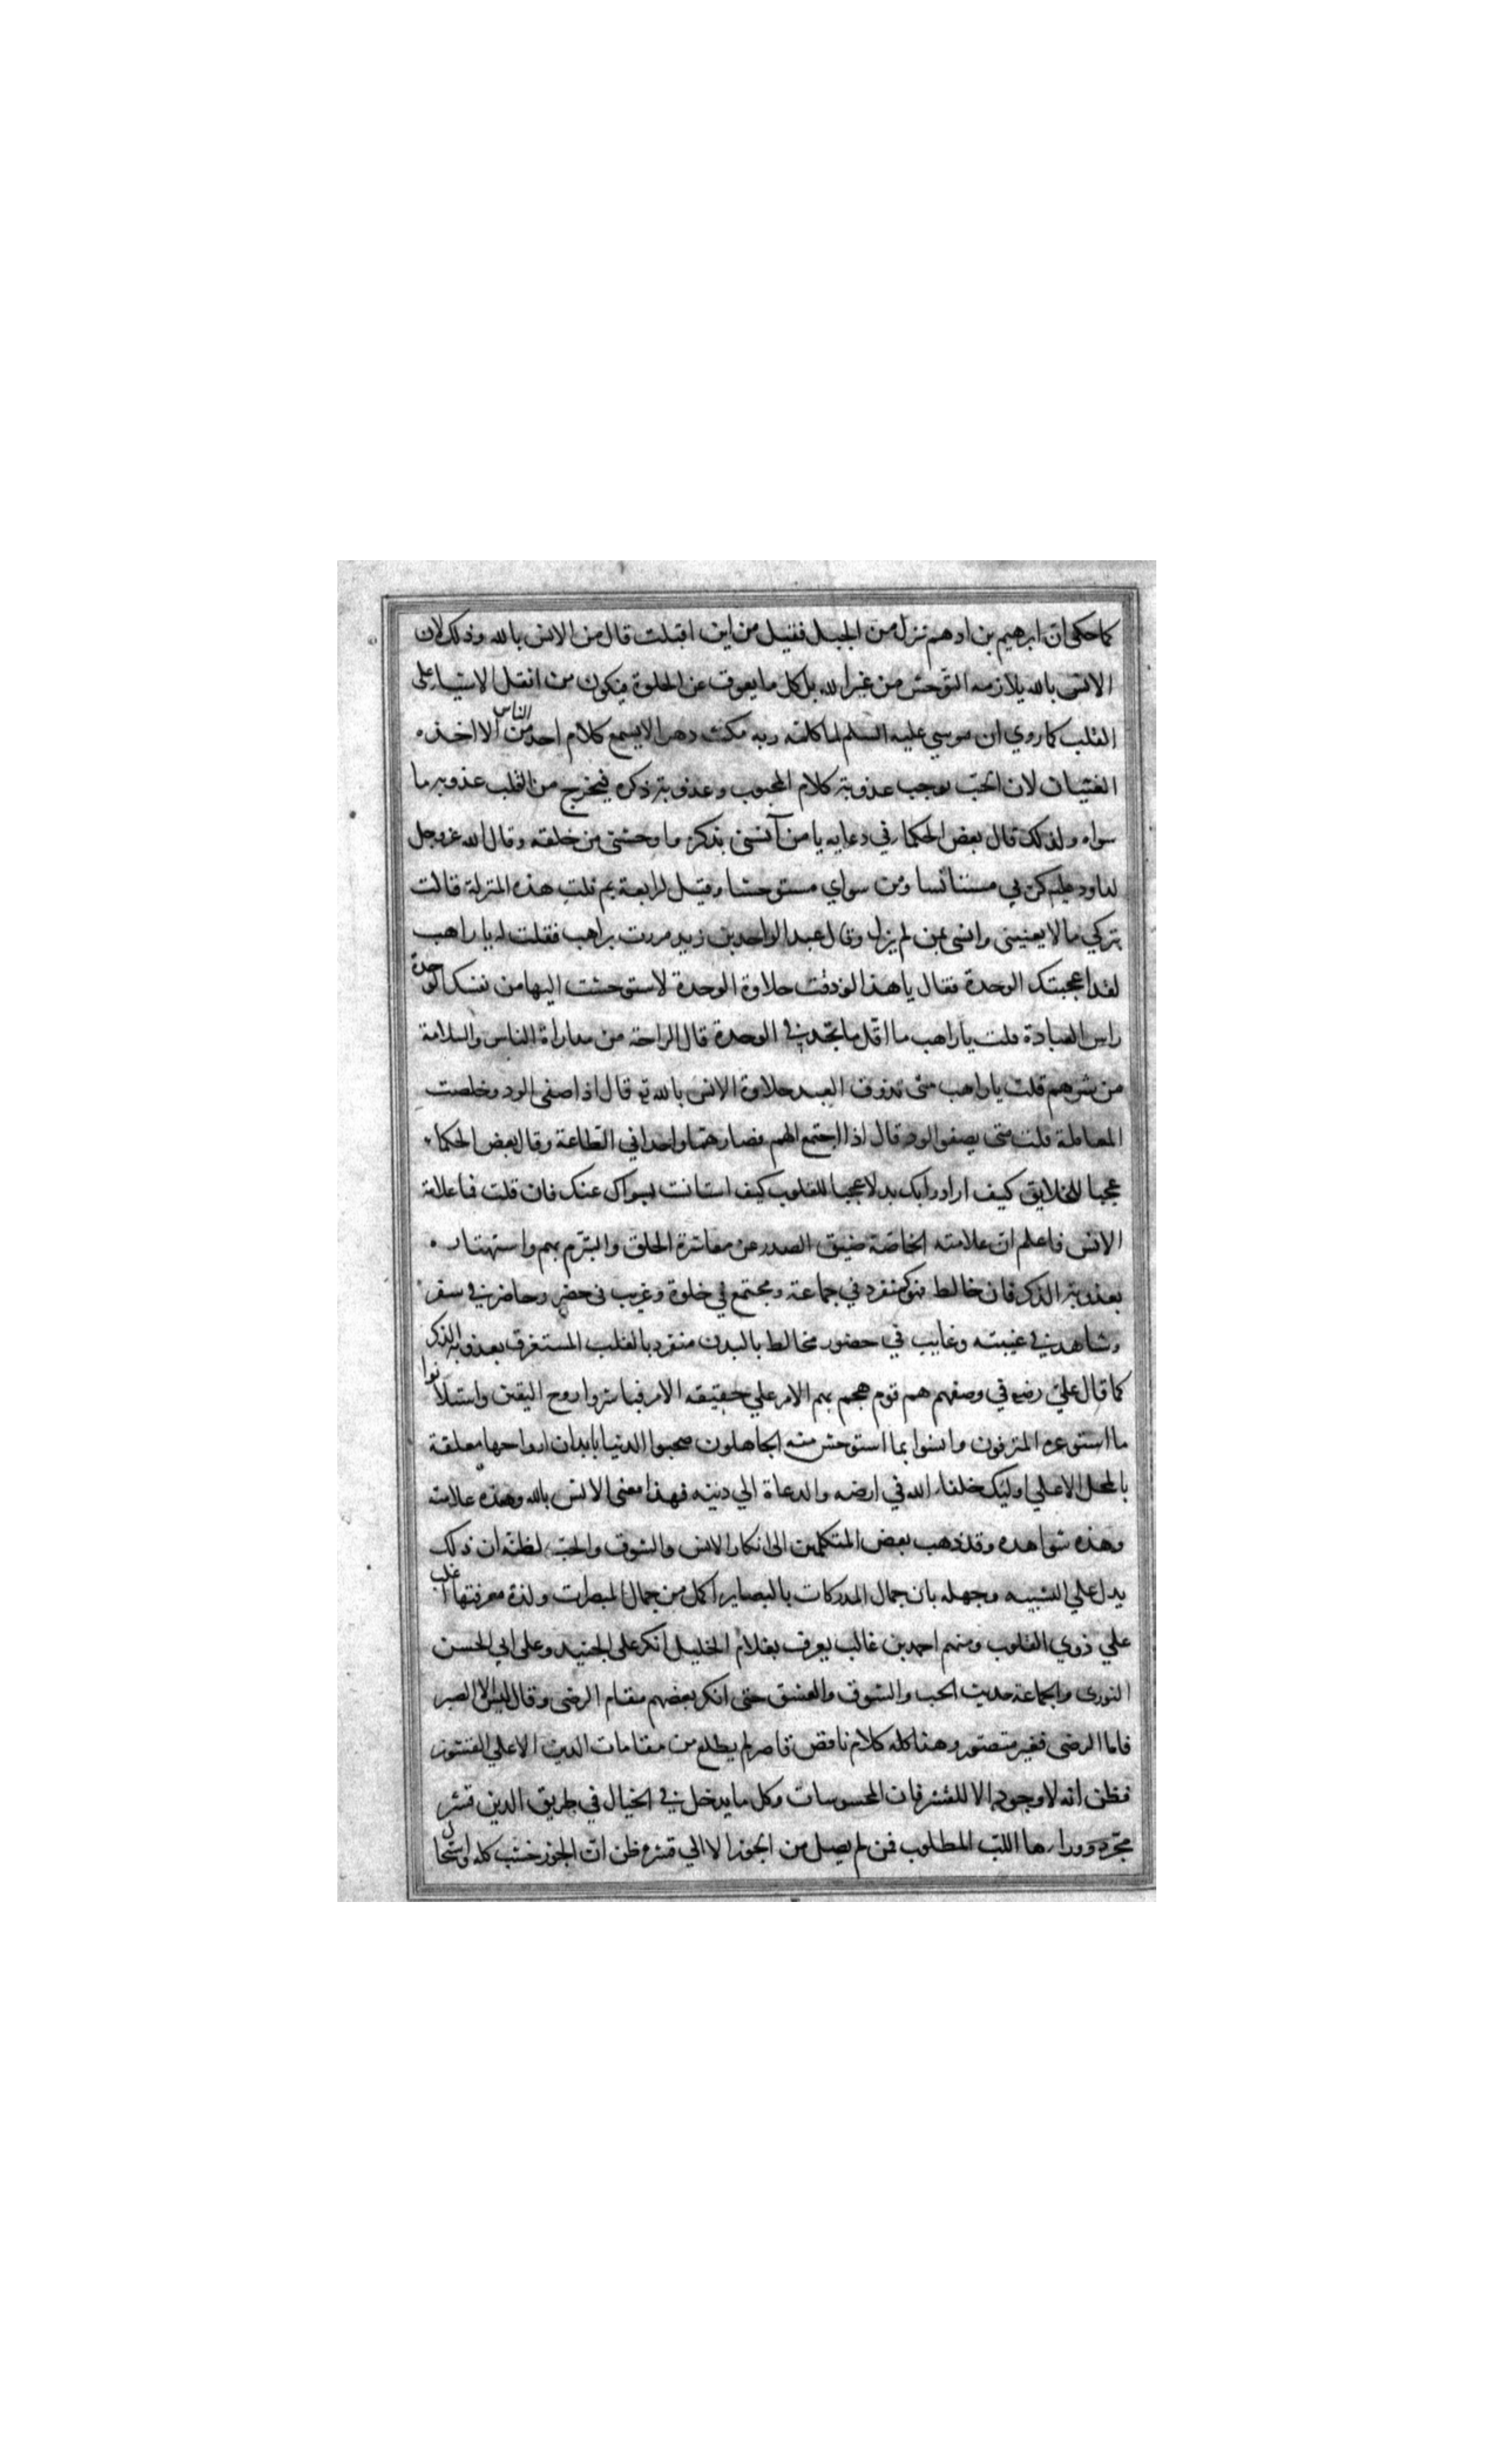 كما حكي ان ابرهيم بن ادهم نزل من الجبل فقيل من اين اقبلت قال من الانس بالله وذلك لان
الانس بالله يلازمه التوحش من غير الله بل كل ما يعوق عن الخلوة فيكون من اثقل الاشيا على
القلب كما روي ان موسي عليه السلم لما كلمه ربه مكث دهرا لا يسمع كلام احد من الناس الا اخذه
الغثيان لان الحب يوجب عذوبة كلام المحبوب وعذوبة ذكره فيخرج من القلب عذوبة ما
سواه ولذلك قال بعض الحكما في دعايه يا من آنسني بذكره واوحشني من خلقه وقال الله عز وجل
لداود عليه كن بي مستانسا ومن سواي مستوحشا وقيل لرابعة بم نلت هذه المنزلة قالت
بتركي ما لا يعنيني وانسي بمن لم يزل وقال عبد الواحد بن زيد مررت براهب فقلت له يا راهب
لقد اعجبتك الوحدة فقال يا هذا لو ذقت حلاوة الوحدة لاستوحشت اليها من نفسك الوحدة
راس العبادة قلت يا راهب ما اقل ما تجد في الوحدة قال الراحة من مداراة الناس والسلامة
من شرهم قلت يا راهب متى يذوق العبد حلاوة الانس بالله تع قال اذا صفى الود وخلصت
المعاملة قلت متى يصفو الود قال اذا اجتمع الهم فصار هما واحدا في الطاعة وقال بعض الحكماء
عجبا للخلايق كيف ارادوا بك بدلا عجبا للقلوب كيف استانست بسواك عنك فان قلت فما علامة
الانس فاعلم ان علامته الخاصة ضيق الصدر عن معاشرة الخلق والتبرم بهم واستهتاره
بعذوبة الذكر فان خالط فهو كمنفرد في جماعة ومجتمع في خلوة وغريب في حضر وحاضر في سفر
وشاهد في غيبته وغايب في حضور مخالط بالبدن منفرد بالقلب المستغرق بعذوبة الذكر
كما قال علي رضه في وصفهم هم قوم هجم بهم الامر علي حقيقه الامر فباشروا روح اليقين واستلانوا
ما استوعره المترفون وانسوا بما استوحش منه الجاهلون صحبوا الدنيا بابدان ارواحها معلقة
بالمحل الاعلي اوليك خلفاء الله في ارضه والدعاة الي دينه فهذا معنى الانس بالله وهذه علامته
وهذه شواهده وقد ذهب بعض المتكلمين الى انكار الانس والشوق والحب لظنه ان ذلك
يدل علي التشبيه وجهله بان جمال المدركات بالبصاير اكمل من جمال المبصرات ولذة معرفتها اغلب
علي ذوي القلوب ومنهم احمد بن غالب يعرف بغلام الخليل انكر على الجنيد وعلى ابي الحسن
النوري والجماعة حديث الحب والشوق والعشق حتى انكر بعضهم مقام الرضى وقال ليس الا الصبر
فاما الرضى فغير متصور وهذا كله كلام ناقص قاصر لم يطلع من مقامات الدين الا علي القشور
فظن انه لا وجود الا للقشر فان المحسوسات وكل ما يدخل في الخيال في طريق الدين قشر
مجرد ووراءها اللب المطلوب فمن لم يصل من الجوز الا الي قشره ظن ان الجوز خشب كله واستحال